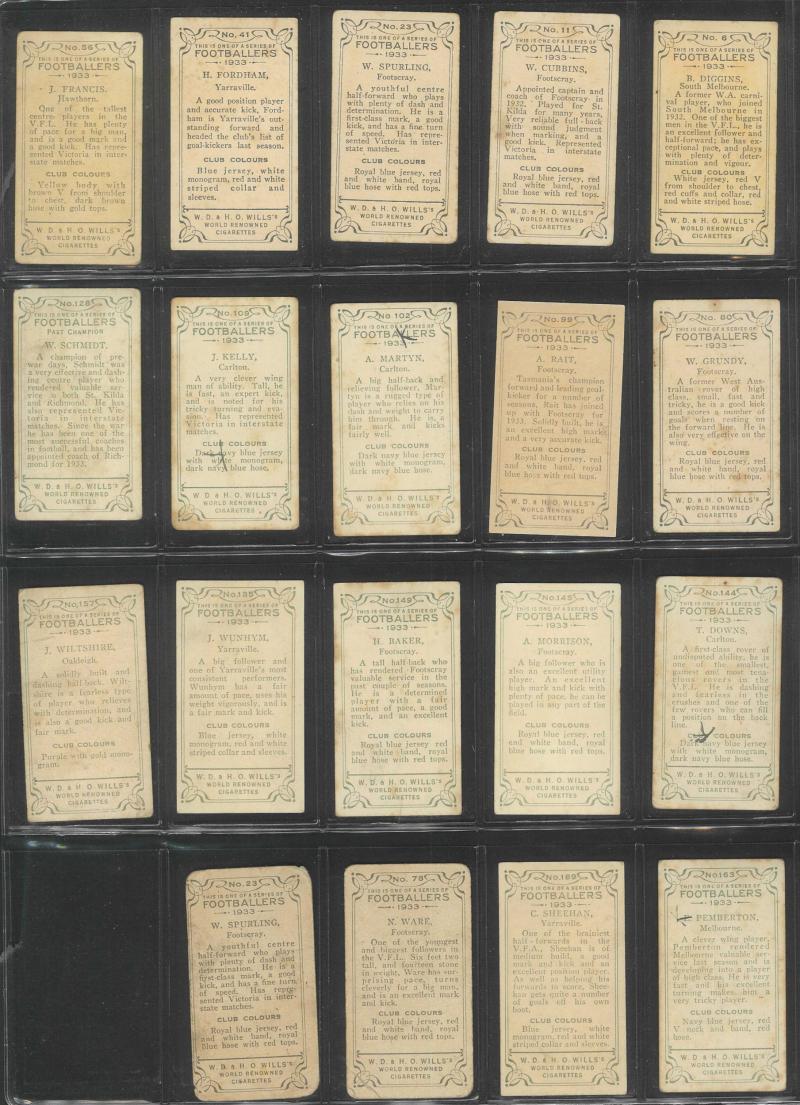 No. 56
THIS IS ONE OF A SERIES OF
FOOTBALLERS
1933
J. FRANCIS.
Hawthorn.
One of the tallest
centre players in the
V.F.L. He has plenty
of pace for a big man,
and is a good mark and
a good kick. Has repre-
sented Victoria in inter-
state matches.
CLUB COLOURS
Yellow body with
brown V from shoulder
to chest, dark brown
hose with gold tops.
W. D. & H. O. WILLS'S
WORLD RENOWNED
CIGARETTES
No. 41
THIS IS ONE OF A SERIES OF
FOOTBALLERS
1933
H. FORDHAM,
Yarraville.
A good position player
and accurate kick, Ford-
ham is Yarraville's out-
standing forward and
headed the club's list of
goal-kickers last season.
CLUB COLOURS
Blue jersey, white
monogram, red and white
striped collar and
sleeves.
W. D. & H. O. WILLS'S
WORLD RENOWNED
CIGARETTES
No. 23
THIS IS ONE OF A SERIES OF
FOOTBALLERS
1933
W. SPURLING,
Footscray.
A youthful centre
half-forward who plays
with plenty of dash and
determination. He is a
first-class mark, a good
kick, and has a fine turn
of speed. Has repre-
sented Victoria in inter-
state matches.
CLUB COLOURS
Royal blue jersey, red
and white band, royal
blue hose with red tops.
W. D. & H. O. WILLS'S
WORLD RENOWNED
CIGARETTES
No. 11
THIS IS ONE OF A SERIES OF
FOOTBALLERS
1933
W. CUBBINS,
Footscray.
Appointed captain and
coach of Footscray in
1932. Played for St.
Kilda for many years,
Very reliable full-back
with sound judgment
when marking, and a
good kick. Represented
Victoria in interstate
matches.
CLUB COLOURS
Royal blue jersey, red
and white band, royal
blue hose with red tops.
W. D. & H. O. WILLS'S
WORLD RENOWNED
CIGARETTES
No. 6
THIS IS ONE OF A SERIES OF
FOOTBALLERS
1933
B. DIGGINS,
South Melbourne.
A former W.A. carni-
val player, who joined
South Melbourne in
1932. One of the biggest
men in the V.F.L., he is
an excellent follower and
half-forward; he has ex-
ceptional pace, and plays
with plenty of deter-
mination and vigour.
CLUB COLOURS
White jersey, red V
from shoulder to chest,
red cuffs and collar, red
and white striped hose.
W. D. & H. O. WILLS'S
WORLD RENOWNED
CIGARETTES
No. 128
THIS IS ONE OF A SERIES OF
FOOTBALLERS
PAST CHAMPION
W. SCHMIDT.
A champion of pre-
war days, Schmidt was
a very effective and dash-
ing centre player who
rendered valuable ser-
vice to both St. Kilda
and Richmond. He has
also represented Vic-
toria in interstate
matches. Since the war
he has been one of the
most successful coaches
in football, and has been
appointed coach of Rich-
mond for 1933.
W. D. & H. O. WILLS'S
WORLD RENOWNED
CIGARETTES
No. 109
THIS IS ONE OF A SERIES OF
FOOTBALLERS
1933
J. KELLY,
Carlton.
A very clever wing
man of ability. Tall, he
is fast, an expert kick,
and is noted for his
tricky turning and eva-
sion. Has represented
Victoria in interstate
matches.
CLUB COLOURS
Dark navy blue jersey
with white monogram,
dark navy blue hose.
W. D. & H. O. WILLS'S
WORLD RENOWNED
CIGARETTES
No 102
THIS IS ONE OF A SERIES OF
FOOTBALLERS
1933
A. MARTYN,
Carlton.
A big half-back and
relieving follower, Mar-
tyn is a rugged type of
player who relies on his
dash and weight to carry
him through. He is a
fair mark and kicks
fairly well.
CLUB COLOURS
Dark navy blue jersey
with white monogram,
dark navy blue hose.
W. D. & H. O. WILLS'S
WORLD RENOWNED
CIGARETTES
No. 99
THIS IS ONE OF A SERIES OF
FOOTBALLERS
1933
A. RAIT,
Footscray.
Tasmania's champion
forward and leading goal-
kicker for a number of
seasons, Rait has joined
up with Footscray for
1933. Solidly built, he is
an excellent high mark
and a very accurate kick.
CLUB COLOURS
Royal blue jersey, red
and white band, royal
blue hose with red tops.
W. D. & H. O. WILLS'S
WORLD RENOWNED
CIGARETTES
No. 80
THIS IS ONE OF A SERIES OF
FOOTBALLERS
1933
W. GRUNDY,
Footscray.
A former West Aus-
tralian rover of high
class, small, fast and
tricky, he is a good kick
and scores a number of
goals when resting on
the forward line. He is
also very effective on the
wing.
CLUB COLOURS
Royal blue jersey, red
and white band, royal
blue hose with red tops.
W. D. & H. O. WILLS'S
WORLD RENOWNED
CIGARETTES
No. 157
THIS IS ONE OF A SERIES OF
FOOTBALLERS
1933
J. WILTSHIRE,
Oakleigh.
A solidly built and
dashing half-back. Wilt-
shire is a fearless type
of player who relieves
with determination, and
is also a good kick and
fair mark.
CLUB COLOURS
Purple with gold mono-
gram.
W. D. & H. O. WILLS'S
WORLD RENOWNED
CIGARETTES
THIS IS ONE OF A SERIES OF
FOOTBALLERS
1933
J. WUNHYM,
Yarraville.
A big follower and
one of Yarraville's most
consistent performers.
Wunhym has a fair
amount of pace, uses his
weight vigorously, and is
a fair mark and kick.
CLUB COLOURS
Blue jersey, white
monogram, red and white
striped collar and sleeves.
W. D. & H. O. WILLS'S
WORLD RENOWNED
CIGARETTES
No. 149
THIS IS ONE OF A SERIES OF
FOOTBALLERS
1933
H. BAKER,
Footscray.
A tall half-back who
has rendered Footscray
valuable service in the
past couple of seasons.
He is a determined
player with a fair
amount of pace, a good
mark, and an excellent
kick.
CLUB COLOURS
Royal blue jersey red
and white band, royal
blue hose with red tops.
W. D. & H. O. WILLS'S
WORLD RENOWNED
CIGARETTES
No. 145
THIS IS ONE OF A SERIES OF
FOOTBALLERS
1933
A. MORRISON,
Footscray.
A big follower who is
also an excellent utility
player. An excellent
high mark and kick with
plenty of pace, he can be
played in any part of the
field.
CLUB COLOURS
Royal blue jersey, red
and white band, royal
blue hose with red tops.
W. D. & H. O. WILLS'S
WORLD RENOWNED
CIGARETTES
No. 144
THIS IS ONE OF A SERIES OF
FOOTBALLERS
1933
T. DOWNS,
Carlton.
A first-class rover of
undisputed ability, he is
one of the smallest,
gamest and most tena-
cious rovers in the
V.F.L. He is dashing
and fearless in the
crushes and one of the
few rovers who can fill
a position on the back
line.
CLUB COLOURS
Dark navy blue jersey
with white monogram,
dark navy blue hose.
W. D. & H. O. WILLS'S
WORLD RENOWNED
CIGARETTES
No. 23
THIS IS ONE OF A SERIES OF
FOOTBALLERS
1933
W. SPURLING,
Footscray.
A youthful centre
half-forward who plays
with plenty of dash and
determination. He is a
first-class mark, a good
kick, and has a fine turn
of speed. Has repre-
sented Victoria in inter-
state matches.
CLUB COLOURS
Royal blue jersey, red
and white band, royal
blue hose with red tops.
W. D. & H. O. WILLS'S
WORLD RENOWNED
CIGARETTES
No. 78
THIS IS ONE OF A SERIES OF
FOOTBALLERS
1933
N. WARE,
Footscray.
One of the youngest
and biggest followers in
the V.F.L. Six feet two
tall, and fourteen stone
in weight, Ware has sur-
prising pace, turns
cleverly for a big man,
and is an excellent mark
and kick.
CLUB COLOURS
Royal blue jersey, red
and white band, royal
blue hose with red tops.
W. D. & H. O. WILLS'S
WORLD RENOWNED
CIGARETTES
No. 189
THIS IS ONE OF A SERIES OF
FOOTBALLERS
1933
C. SHEEHAN,
Yarraville.
One of the brainiest
half-forwards in the
V.F.A., Sheehan is of
medium build, a good
mark and kick and an
excellent position player.
As well as helping his
forwards to score, Shee-
han gets quite a number
of goals off his own
boot.
CLUB COLOURS
Blue jersey, white
monogram, red and white
striped collar and sleeves.
W. D. & H. O. WILLS'S
WORLD RENOWNED
CIGARETTES
No 163
THIS IS ONE OF A SERIES OF
FOOTBALLERS
1933
PEMBERTON,
Melbourne.
A clever wing player,
Pemberton rendered
Melbourne valuable ser-
vice last season and is
developing into a player
of high class. He is very
fast and his excellent
turning makes him a
very tricky player.
CLUB COLOURS
Navy blue jersey, red
V neck and band, red
hose.
W. D. & H. O. WILLS'S
WORLD RENOWNED
CIGARETTES